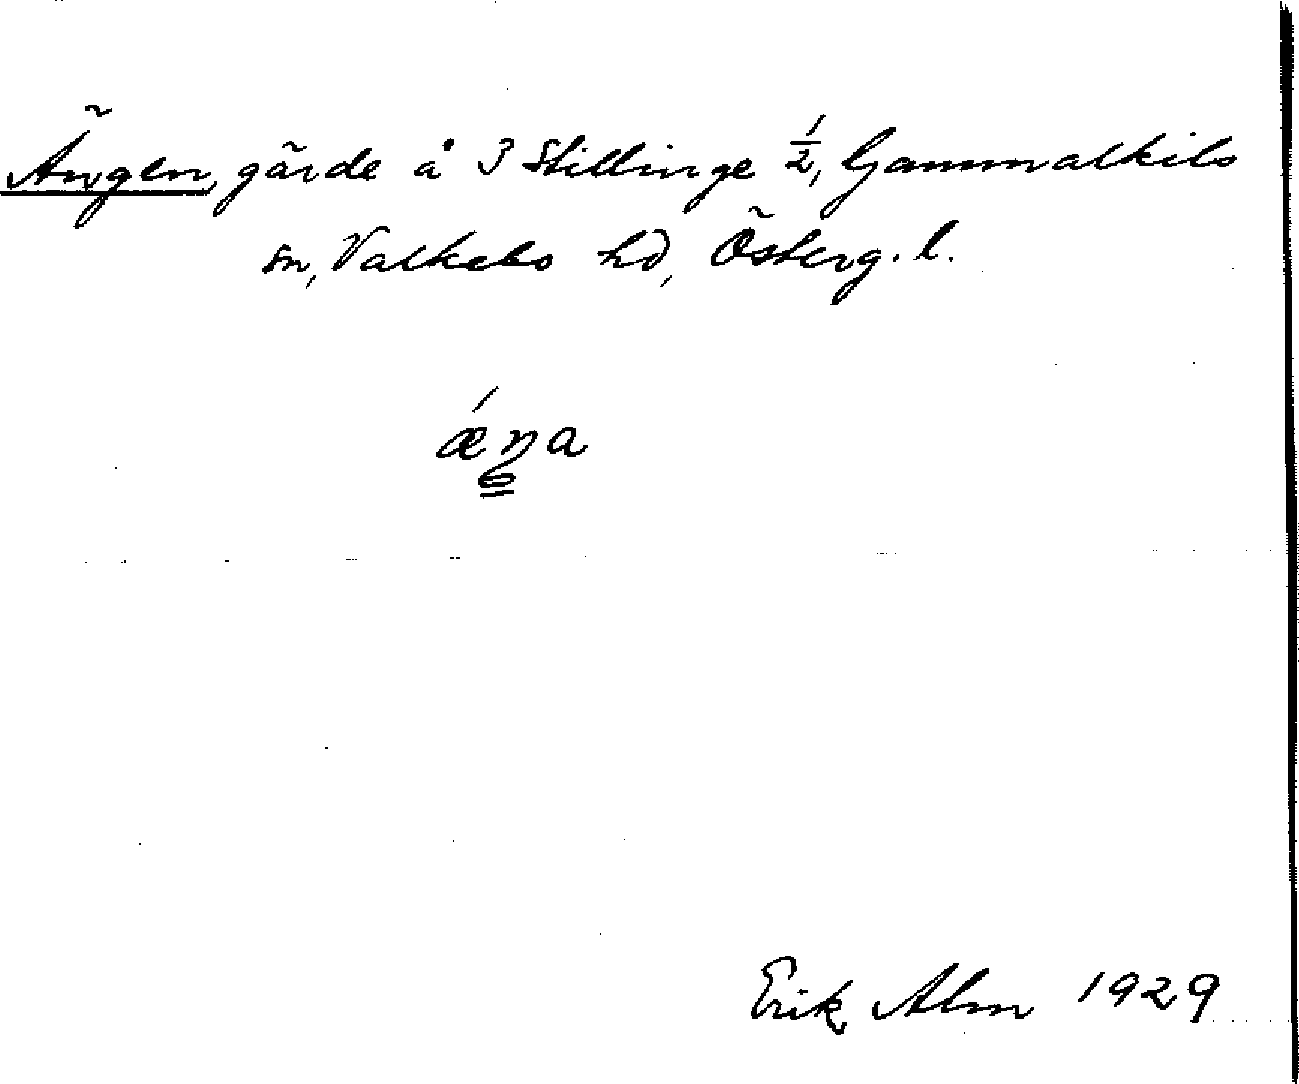 Ängen, gärde å 3 Stillinge ½, Gammalkils
sn, Valkebo hd, Österg. l.
ǽŋa
Erik Alm 1929